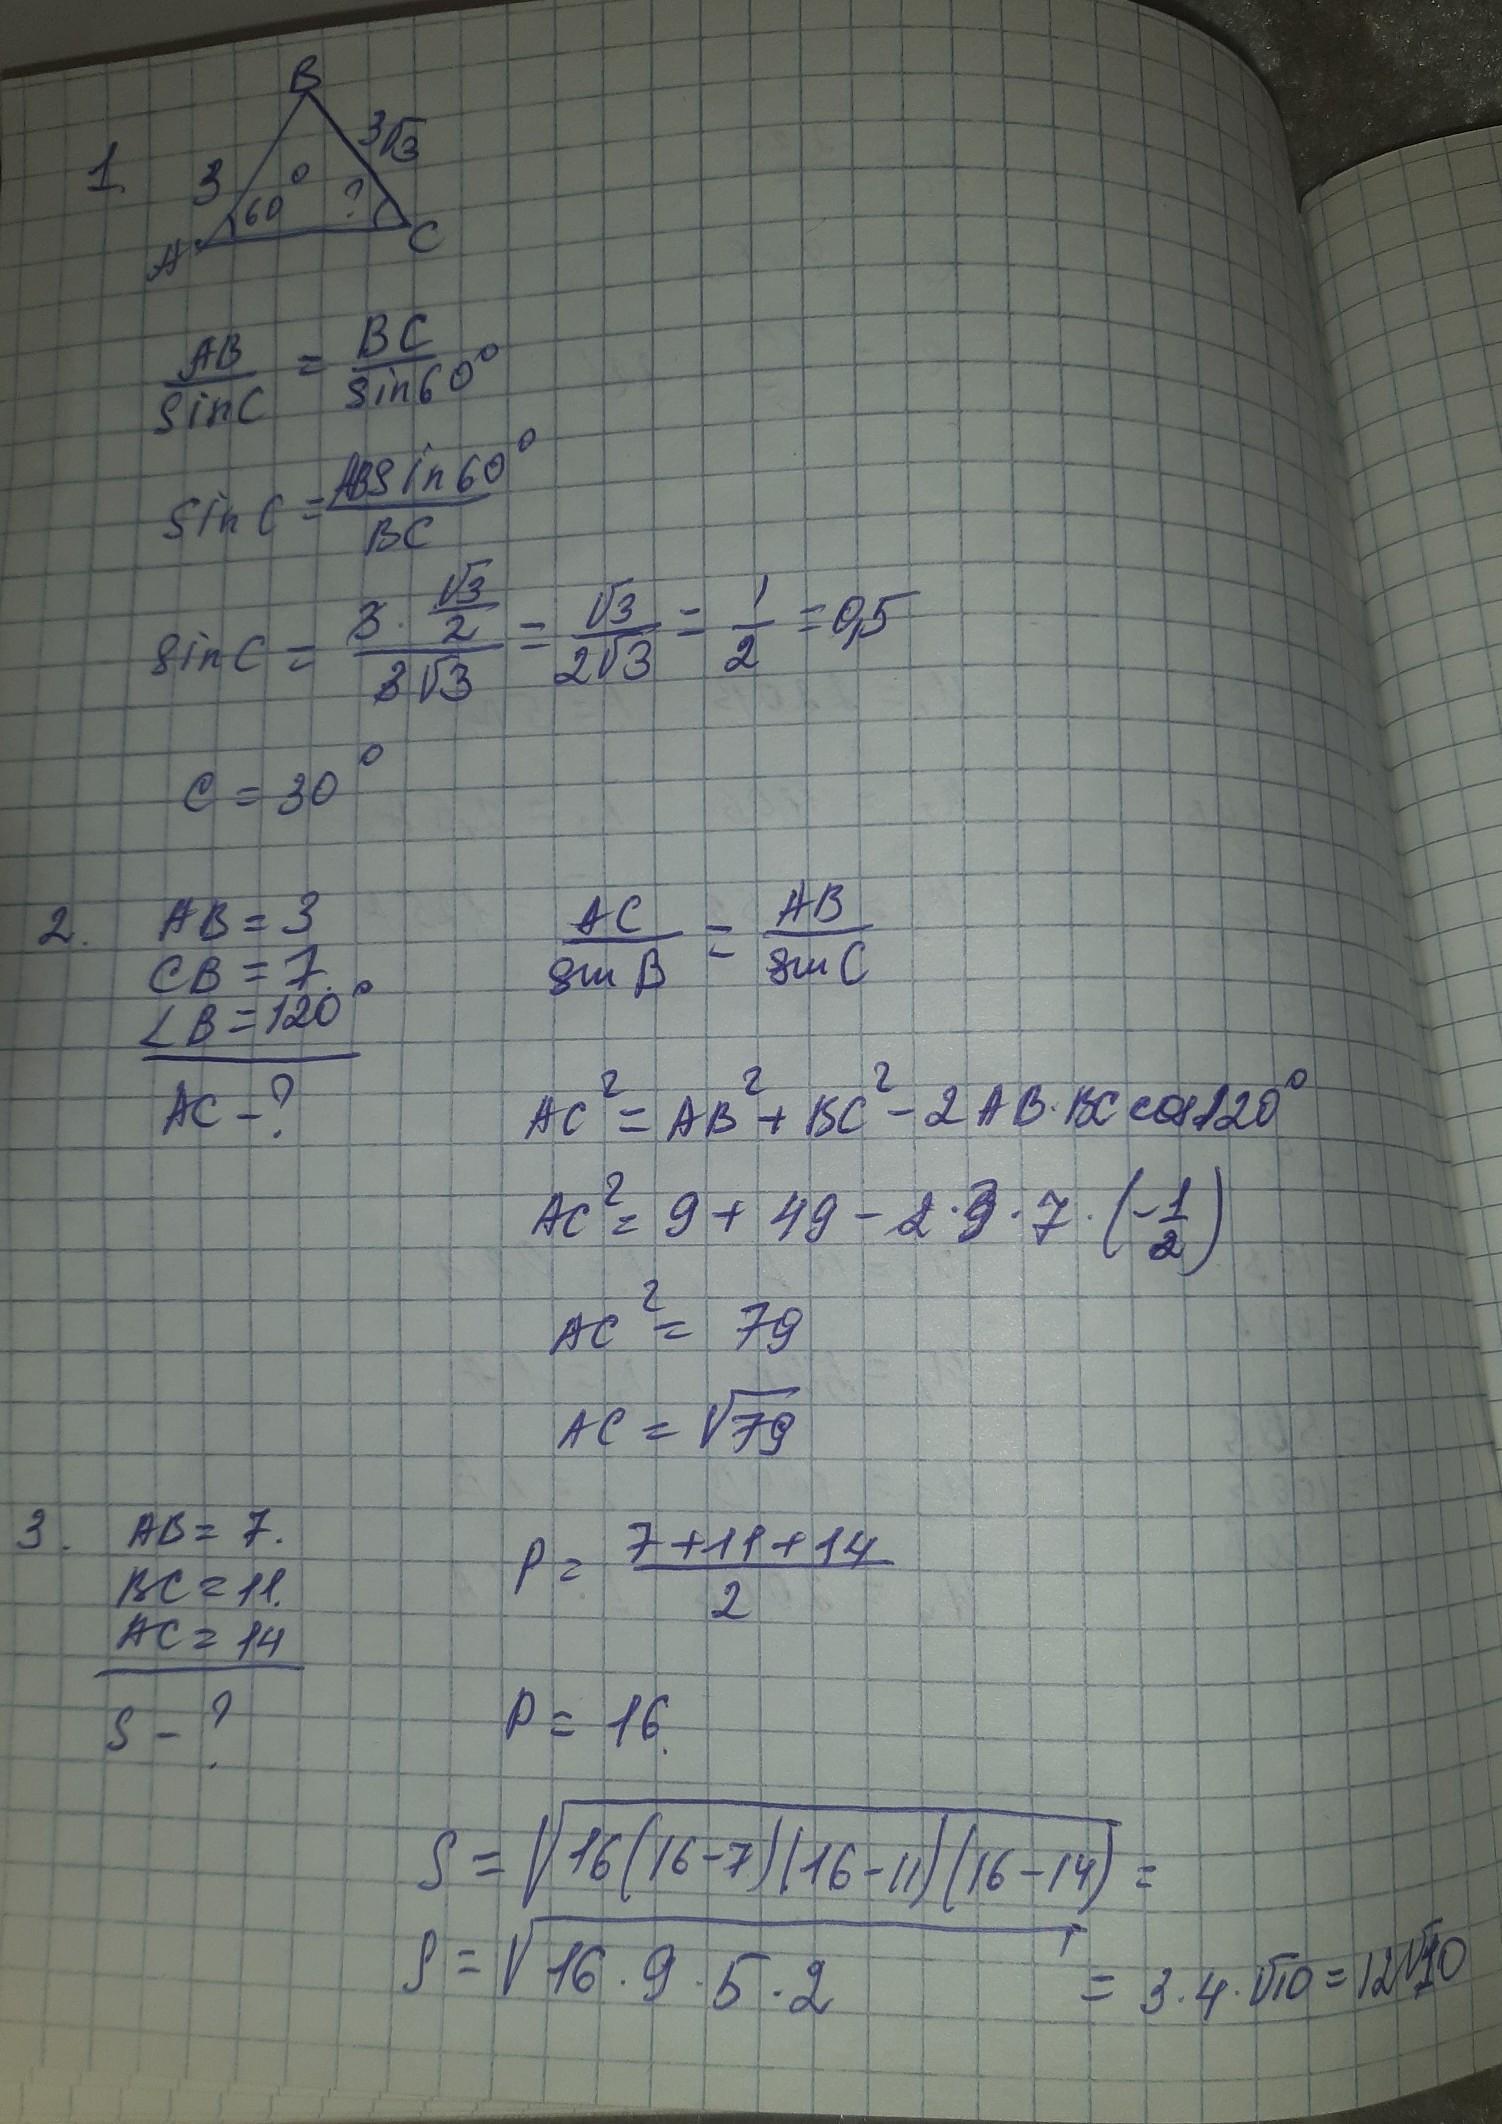 B
1. 3 3√3
60° ?
A C
AB/sinC = BC/sin60°
sinC = ABsin60°/BC
sinC = (3·√3/2)/(3√3) = √3/(2√3) = 1/2 = 0,5
C = 30°
2. AB = 3 AC/sinB = AB/sinC
CB = 7.
∠B = 120°
AC - ? AC² = AB² + BC² - 2AB·BC cos120°
AC² = 9 + 49 - 2·3·7·(-1/2)
AC² = 79
AC = √79
3. AB = 7. P = (7+11+14)/2
BC = 11.
AC = 14
S - ? P = 16.
S = √(16(16-7)(16-11)(16-14)) =
S = √(16·9·5·2) = 3·4·√10 = 12√10